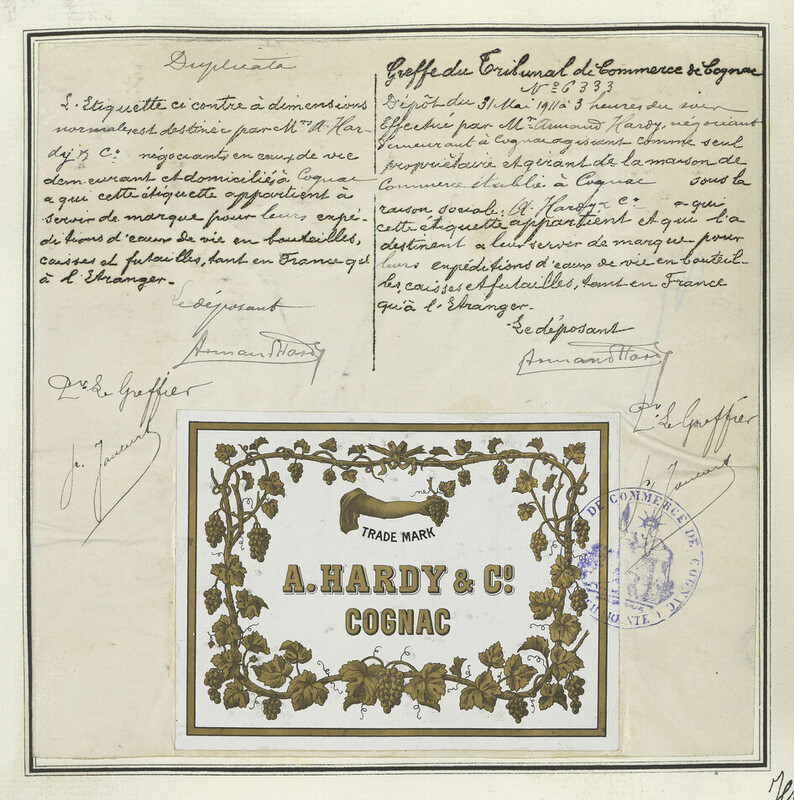 Duplicata
L'Etiquette ci contre à dimensions
normales est destinée par Mrs A. Har-
dy & Co négociants en eaux de vie
demeurant et domiciliés à Cognac
a qui cette étiquette appartient à
servir de marque pour leurs expé-
ditions d'eaux de vie en bouteilles,
caisses et futailles, tant en France qu'
à l'Etranger.-
Le déposant
Armand Hardy
Pr Le Greffier
Greffe du Tribunal de Commerce de Cognac
No 6333
Dépôt du 31 Mai 1911 à 3 heures du soir
Effectué par Mr Armand Hardy, négociant
demeurant à Cognac agissant comme seul
propriétaire et gérant de la maison de
Commerce établie à Cognac sous la
raison sociale: A. Hardy & Co a qui
cette étiquette appartient et qui l'a
destinent a leur servir de marque pour
leurs expéditions d'eaux de vie en bouteil-
les, caisses et futailles, tant en France
qu'à l'Etranger.-
Le déposant
Armand Hardy
Pr Le Greffier
TRADE MARK
A. HARDY & Co.
COGNAC
DE COMMERCE DE COGNAC
CHARENTE